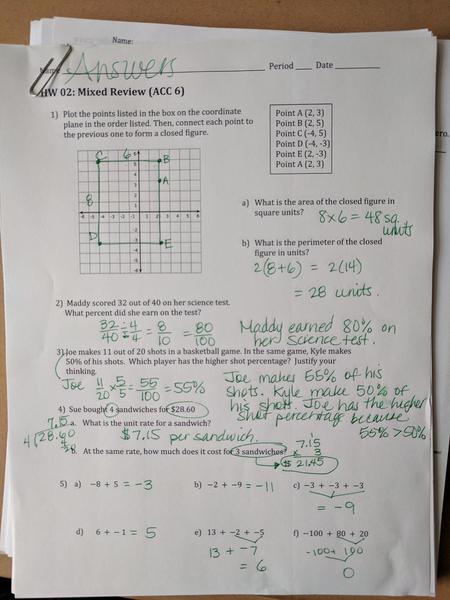 Name:
Name Answers Period ____ Date ________
HW 02: Mixed Review (ACC 6)
1) Plot the points listed in the box on the coordinate
plane in the order listed. Then, connect each point to
the previous one to form a closed figure.
Point A (2, 3)
Point B (2, 5)
Point C (-4, 5)
Point D (-4, -3)
Point E (2, -3)
Point A (2, 3)
C 6 B
A
8
D E
a) What is the area of the closed figure in
square units? 8×6 = 48 sq.
units
b) What is the perimeter of the closed
figure in units?
2(8+6) = 2(14)
= 28 units.
2) Maddy scored 32 out of 40 on her science test.
What percent did she earn on the test?
32/40 ÷4/÷4 = 8/10 = 80/100 Maddy earned 80% on
her science test.
3) Joe makes 11 out of 20 shots in a basketball game. In the same game, Kyle makes
50% of his shots. Which player has the higher shot percentage? Justify your
thinking.
Joe 11/20 × 5/5 = 55/100 = 55%
Joe makes 55% of his
shots. Kyle make 50% of
his shots. Joe has the higher
shot percentage because
55% > 50%
4) Sue bought 4 sandwiches for $28.60
a. What is the unit rate for a sandwich?
7.15
4 28.60
$7.15 per sandwich.
At the same rate, how much does it cost for 3 sandwiches?
7.15
× 3
$21.45
5) a) −8 + 5 = −3 b) −2 + −9 = −11 c) −3 + −3 + −3
= −9
d) 6 + −1 = 5 e) 13 + −2 + −5 f) −100 + 80 + 20
13 + −7 -100 + 100
= 6 0